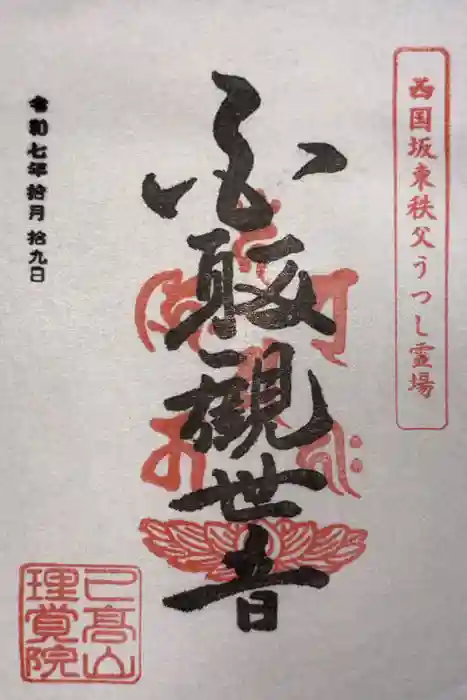 西国坂東秩父うつし霊場
必取観世音
令和七年拾月拾九日
已高山
理覚院